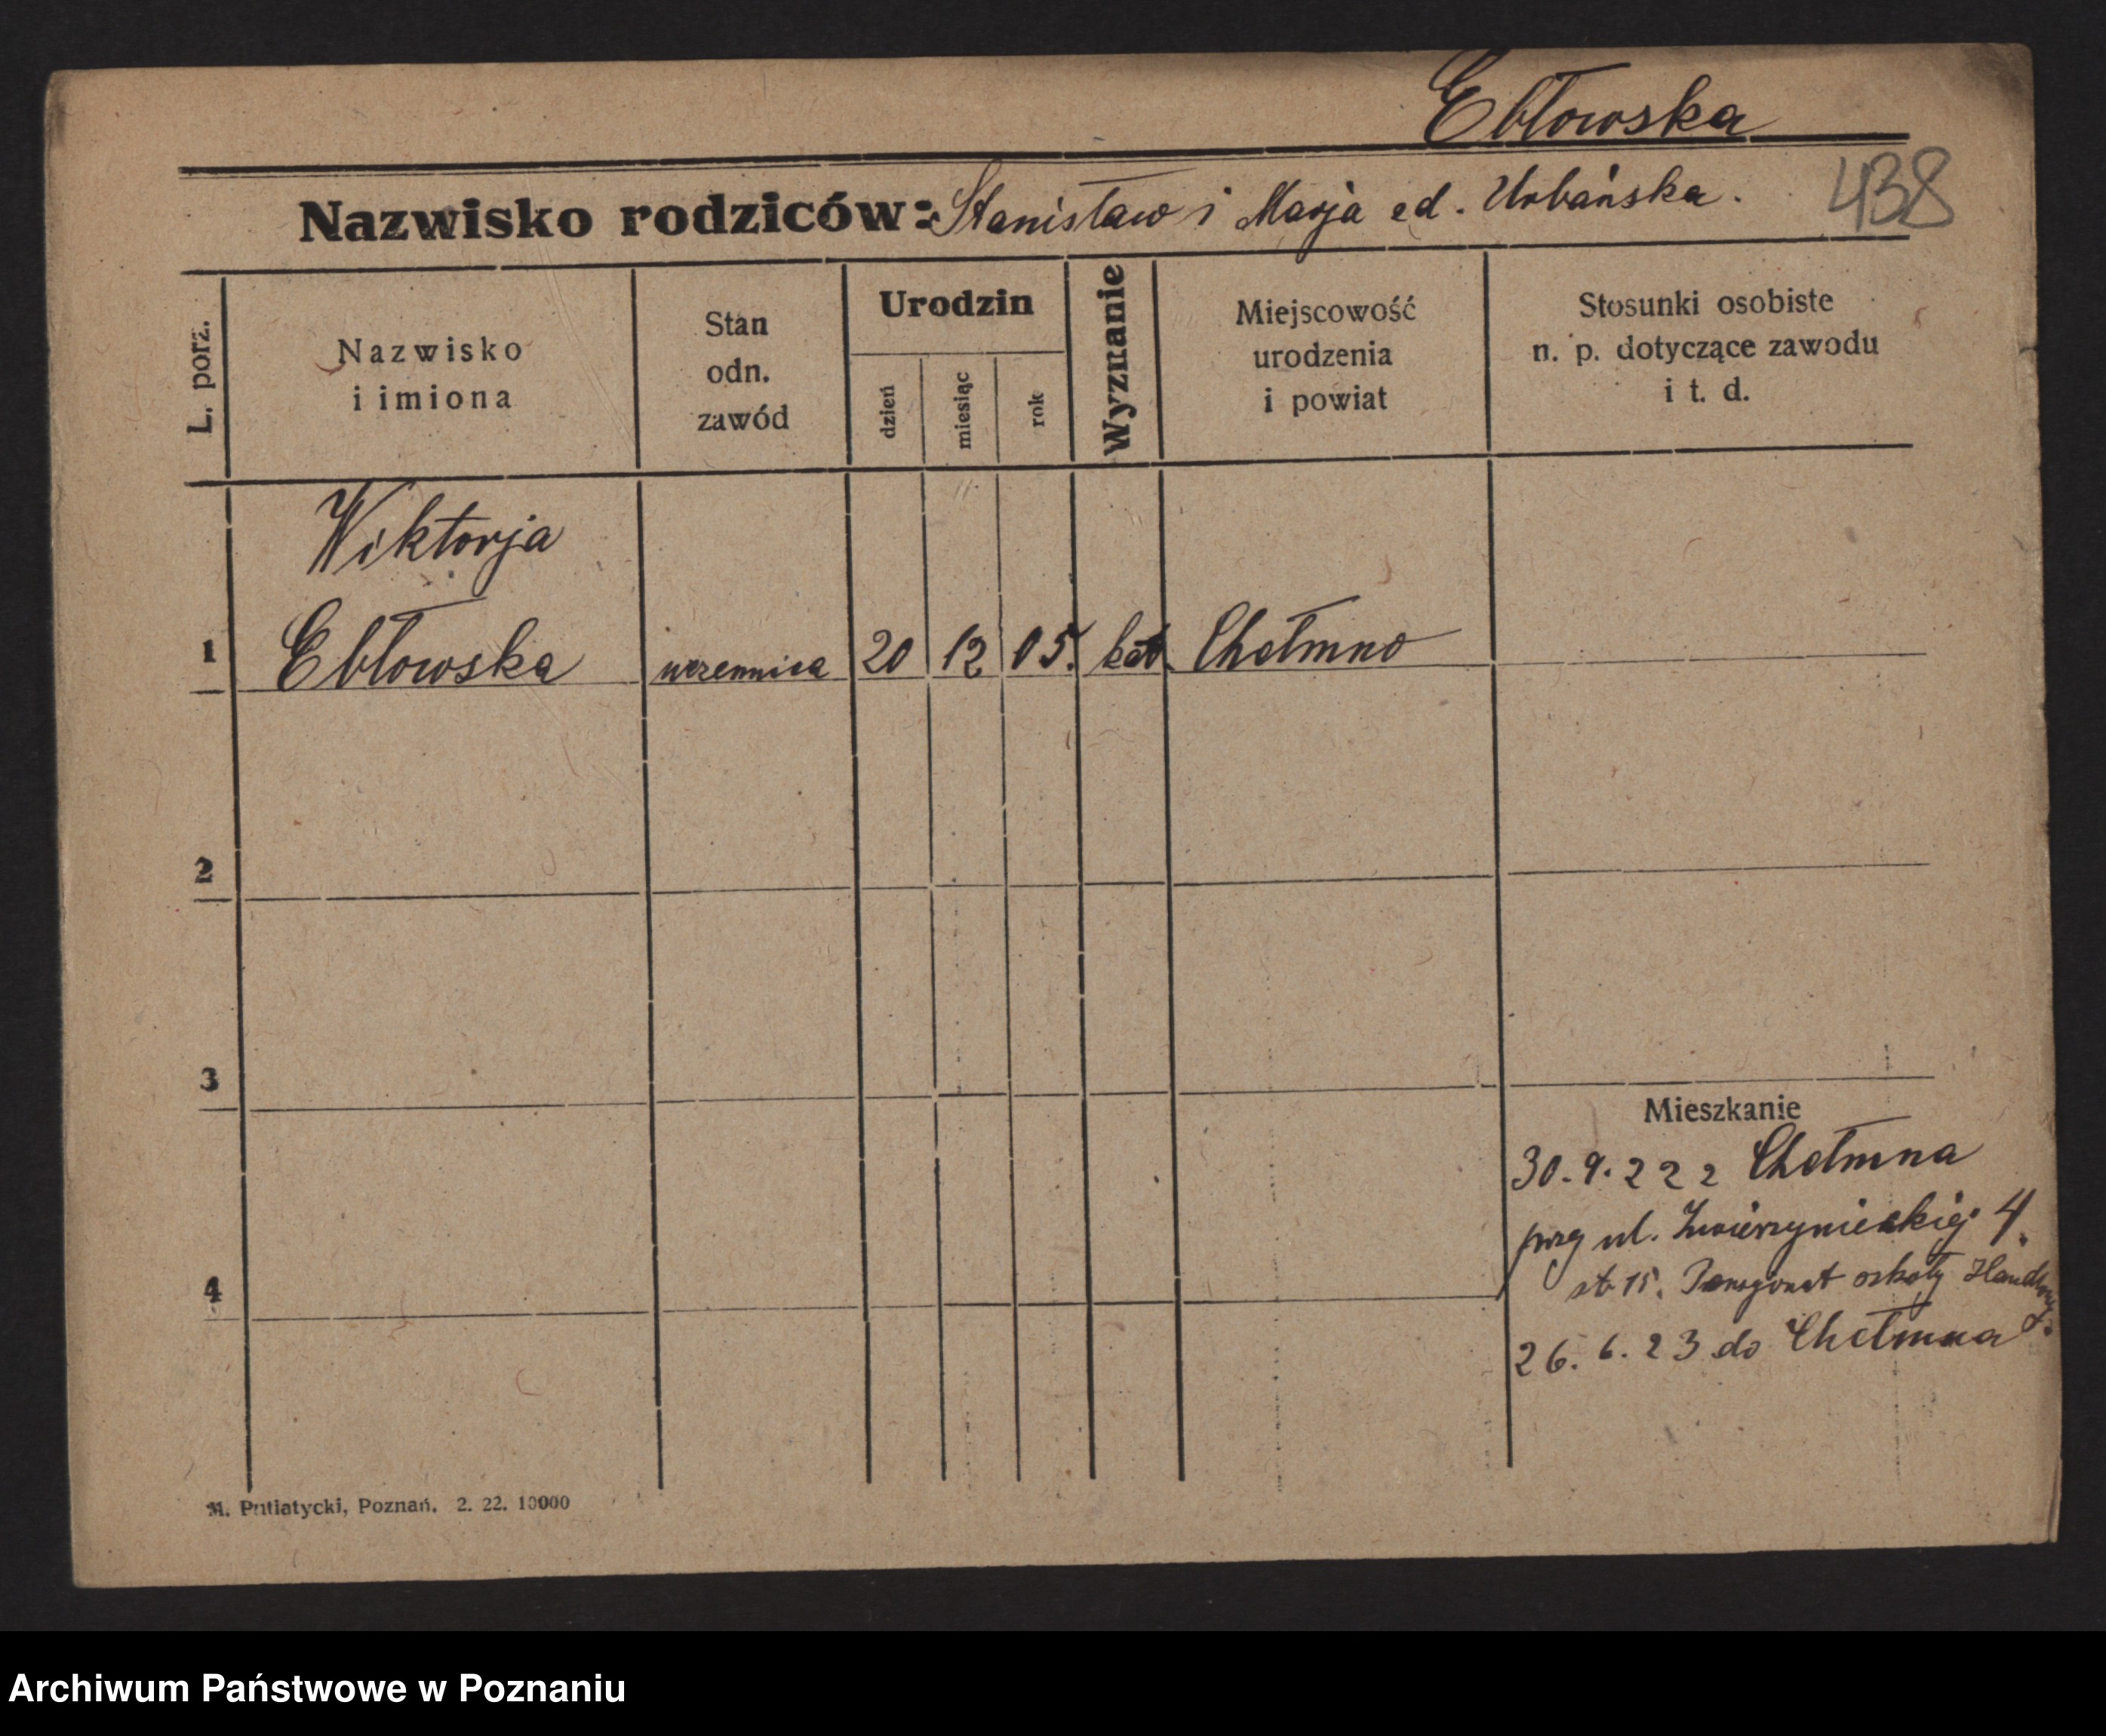 Ebłowska
438
Nazwisko rodziców: Stanisław i Marja ed. Urbańska.
L. porz.
Nazwisko
i imiona
Stan
odn.
zawód
Urodzin
dzień
miesiąc
rok
Wyznanie
Miejscowość
urodzenia
i powiat
Stosunki osobiste
n. p. dotyczące zawodu
i t. d.
Wiktorja
1 Ebłowska uczennica 20 12 05. kat. Chełmno
2
3
Mieszkanie
30. 9. 22 z Chełmna
przy ul. Zwierzynieckiej 4.
4
st 15. Pensjonat szkoły Handlowej.
26. 6. 23 do Chełmna
M. Putiatycki, Poznań. 2. 22. 10000
Archiwum Państwowe w Poznaniu